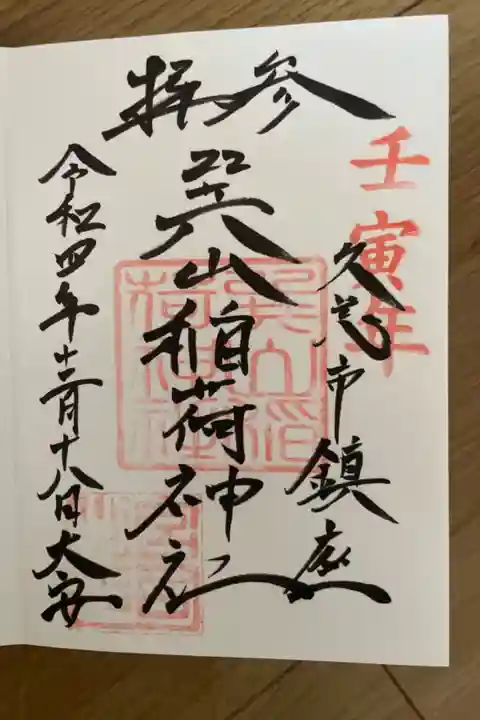 参拝
壬寅年
久慈市鎮座
巽山稲荷神社
令和四年十二月十八日大安